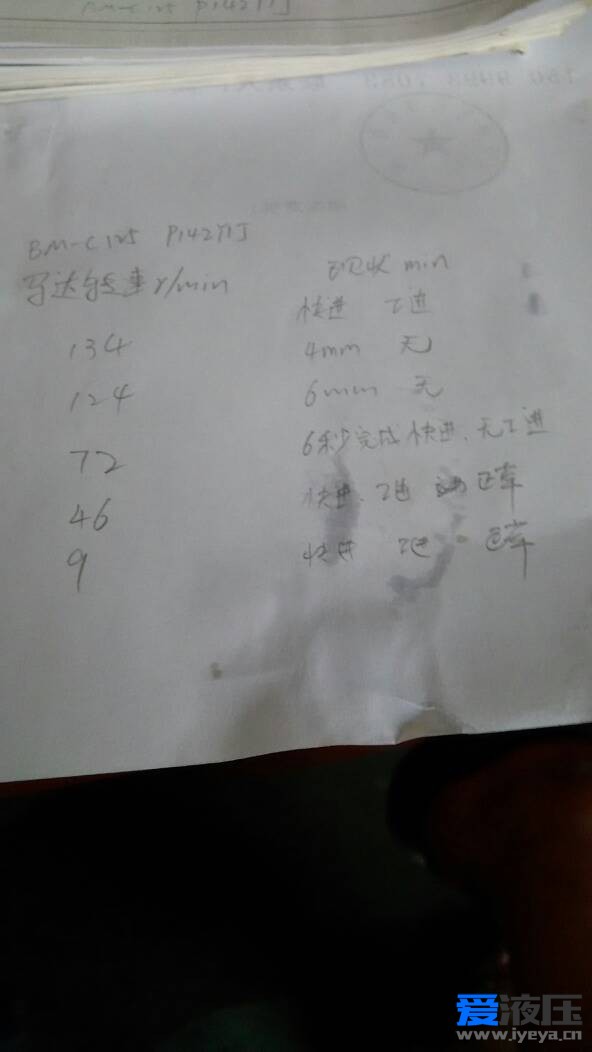 BM-C125 P142Y1J
马达转速r/min 现状 min
快进 工进
134 4mm 无
124 6mm 无
72 6秒完成快进、无工进
46 快进、工进 正车
9 快进 工进
爱液压
www.iyeya.cn